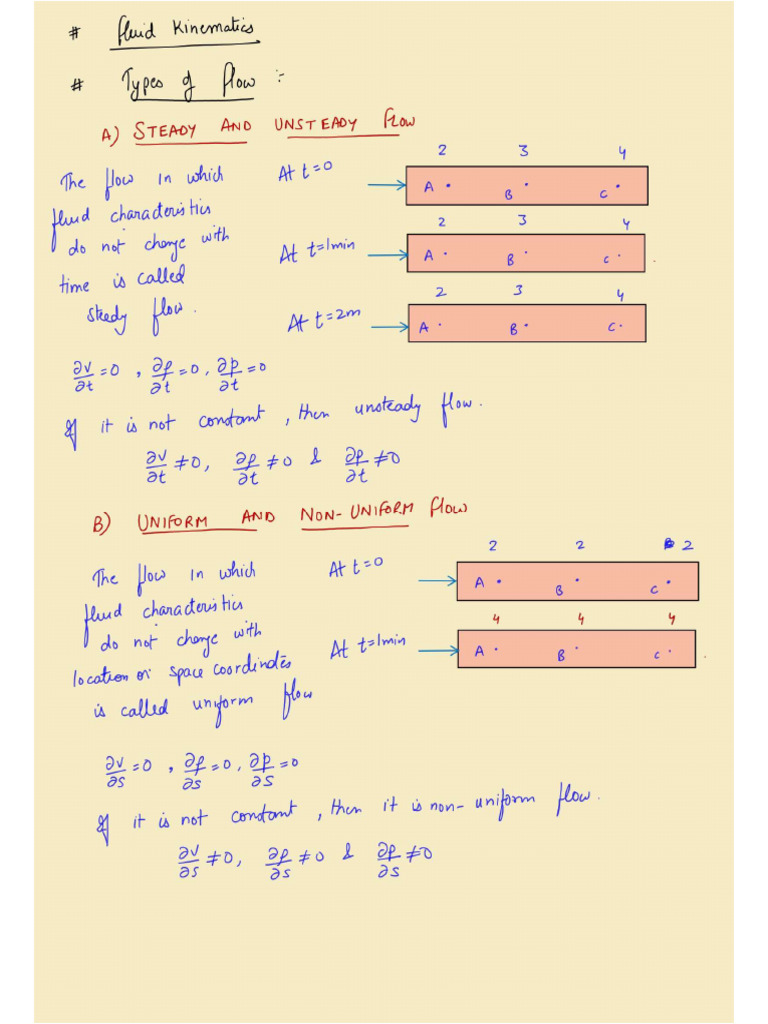 # Fluid Kinematics
# Types of flow :-
A) STEADY AND UNSTEADY Flow
The flow in which
fluid characteristics
do not change with
time is called
steady flow.
At t=0
2 3 4
A B C
At t=1min
2 3 4
A B C
At t=2m
2 3 4
A B C
∂v/∂t = 0 , ∂ρ/∂t = 0 , ∂p/∂t = 0
If it is not constant , then unsteady flow.
∂v/∂t ≠ 0, ∂ρ/∂t ≠ 0 & ∂p/∂t ≠ 0
B) UNIFORM AND NON-UNIFORM flow
The flow in which
fluid characteristics
do not change with
location or space coordinates
is called uniform flow
At t=0
2 2 2
A B C
At t=1min
4 4 4
A B C
∂v/∂s = 0 , ∂ρ/∂s = 0 , ∂p/∂s = 0
If it is not constant , then it is non-uniform flow.
∂v/∂s ≠ 0, ∂ρ/∂s ≠ 0 & ∂p/∂s ≠ 0